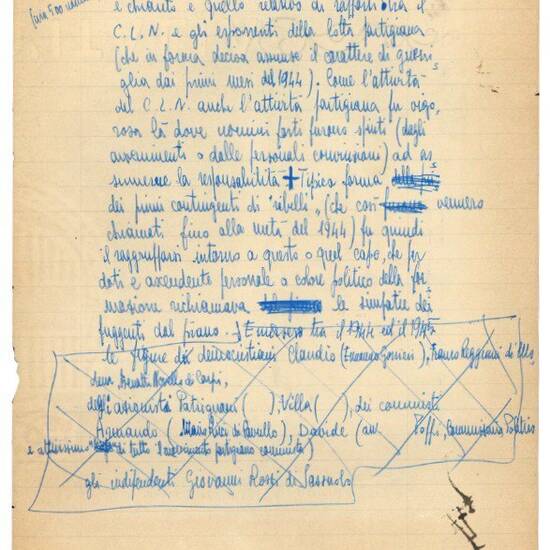 e chiarito e quello relativo ai rapporti tra il
C.L.N. e gli esponenti della lotta partigiana
(che in forma decisa assunse il carattere di guerri
glia dai primi mesi del 1944). Come l'attività
del C.L.N. anche l'attività partigiana fu vigo,
rosa là dove uomini forti furono spinti (dagli
avvenimenti o dalle personali convinzioni) ad as
sumere la responsabilità + Tipica forma
dei primi contingenti di "ribelli" (che così vennero
chiamati fino alla metà del 1944) fu quindi
il raggrupparsi intorno a questo o quel capo, che per
doti e ascendente personale o colore politico della for
mazione richiamava le simpatie dei
fuggenti dal piano. Emersero tra il 1944 ed il 1945
le figure dei democristiani Claudio (Ermanno Gorrieri),
degli azionisti Patrignani ( ), Villa ( ), dei comunisti
Armando (Mario Ricci di Pavullo), Davide ( Poppi, Commissario Politico
e attivissimo di tutto il movimento partigiano comunista)
gli indipendenti Giovanni Rossi di Sassuolo